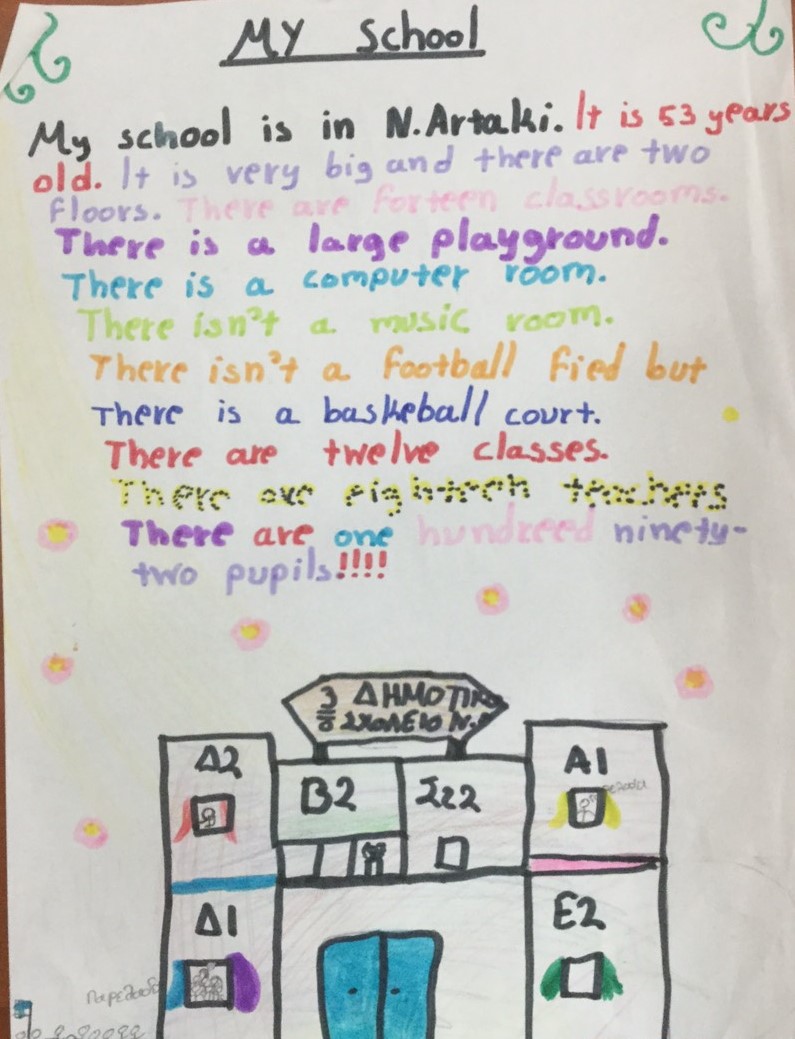 MY School
My school is in N.Artaki. It is 53 years
old. It is very big and there are two
floors. There are forteen classrooms.
There is a large playground.
There is a computer room.
There isn't a music room.
There isn't a football fied but
There is a baskeball court.
There are twelve classes.
There are eighteen teachers
There are one hundreed ninety-
two pupils!!!!
3ο ΔΗΜΟΤΙΚΟ
ΣΧΟΛΕΙΟ Ν.
Δ2
B2
Σι2
A1
Δ1
E2